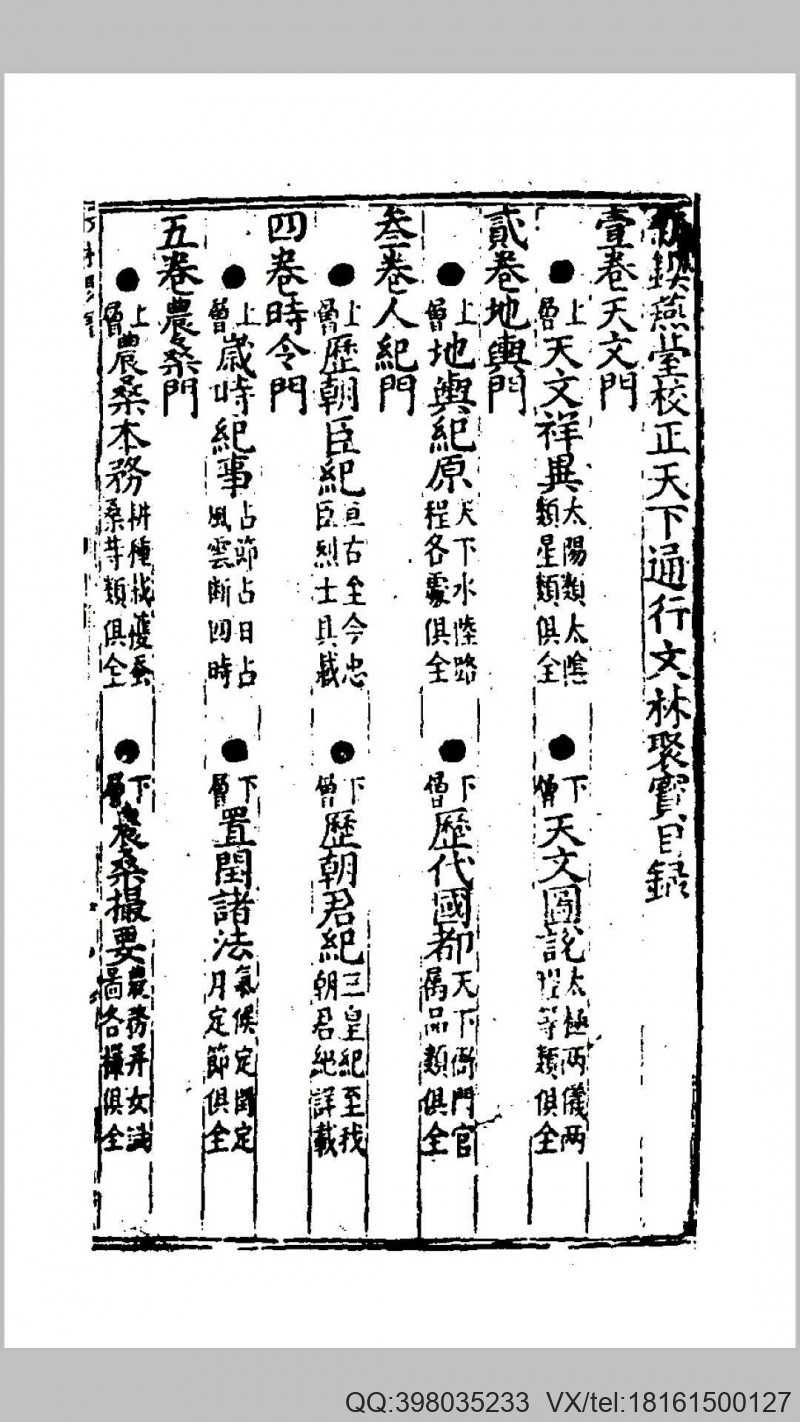 鍥燕堂校正天下通行文林聚寶目錄
壹卷天文門
●上層天文祥異太陽類太陰類星類俱全 ●下層天文圖說太極兩儀兩等類俱全
貳卷地輿門
●上層地輿紀原天下水陸路程各處俱全 ●下層歷代國都天下衙門官屬品類俱全
叁卷人紀門
●上層歷朝臣紀亘古至今忠臣烈士具載 ●下層歷朝君紀三皇紀至我朝君紀詳載
四卷時令門
●上層歲時紀事占節占日占風雲斷四時 ●下層置閏諸法氣候定閏定月定節俱全
五卷農桑門
●上層農桑本務耕種栽蚕桑苧類俱全 ●下層農桑撮要農務并女識圖各樣俱全
QQ:398035233 VX/tel:18161500127